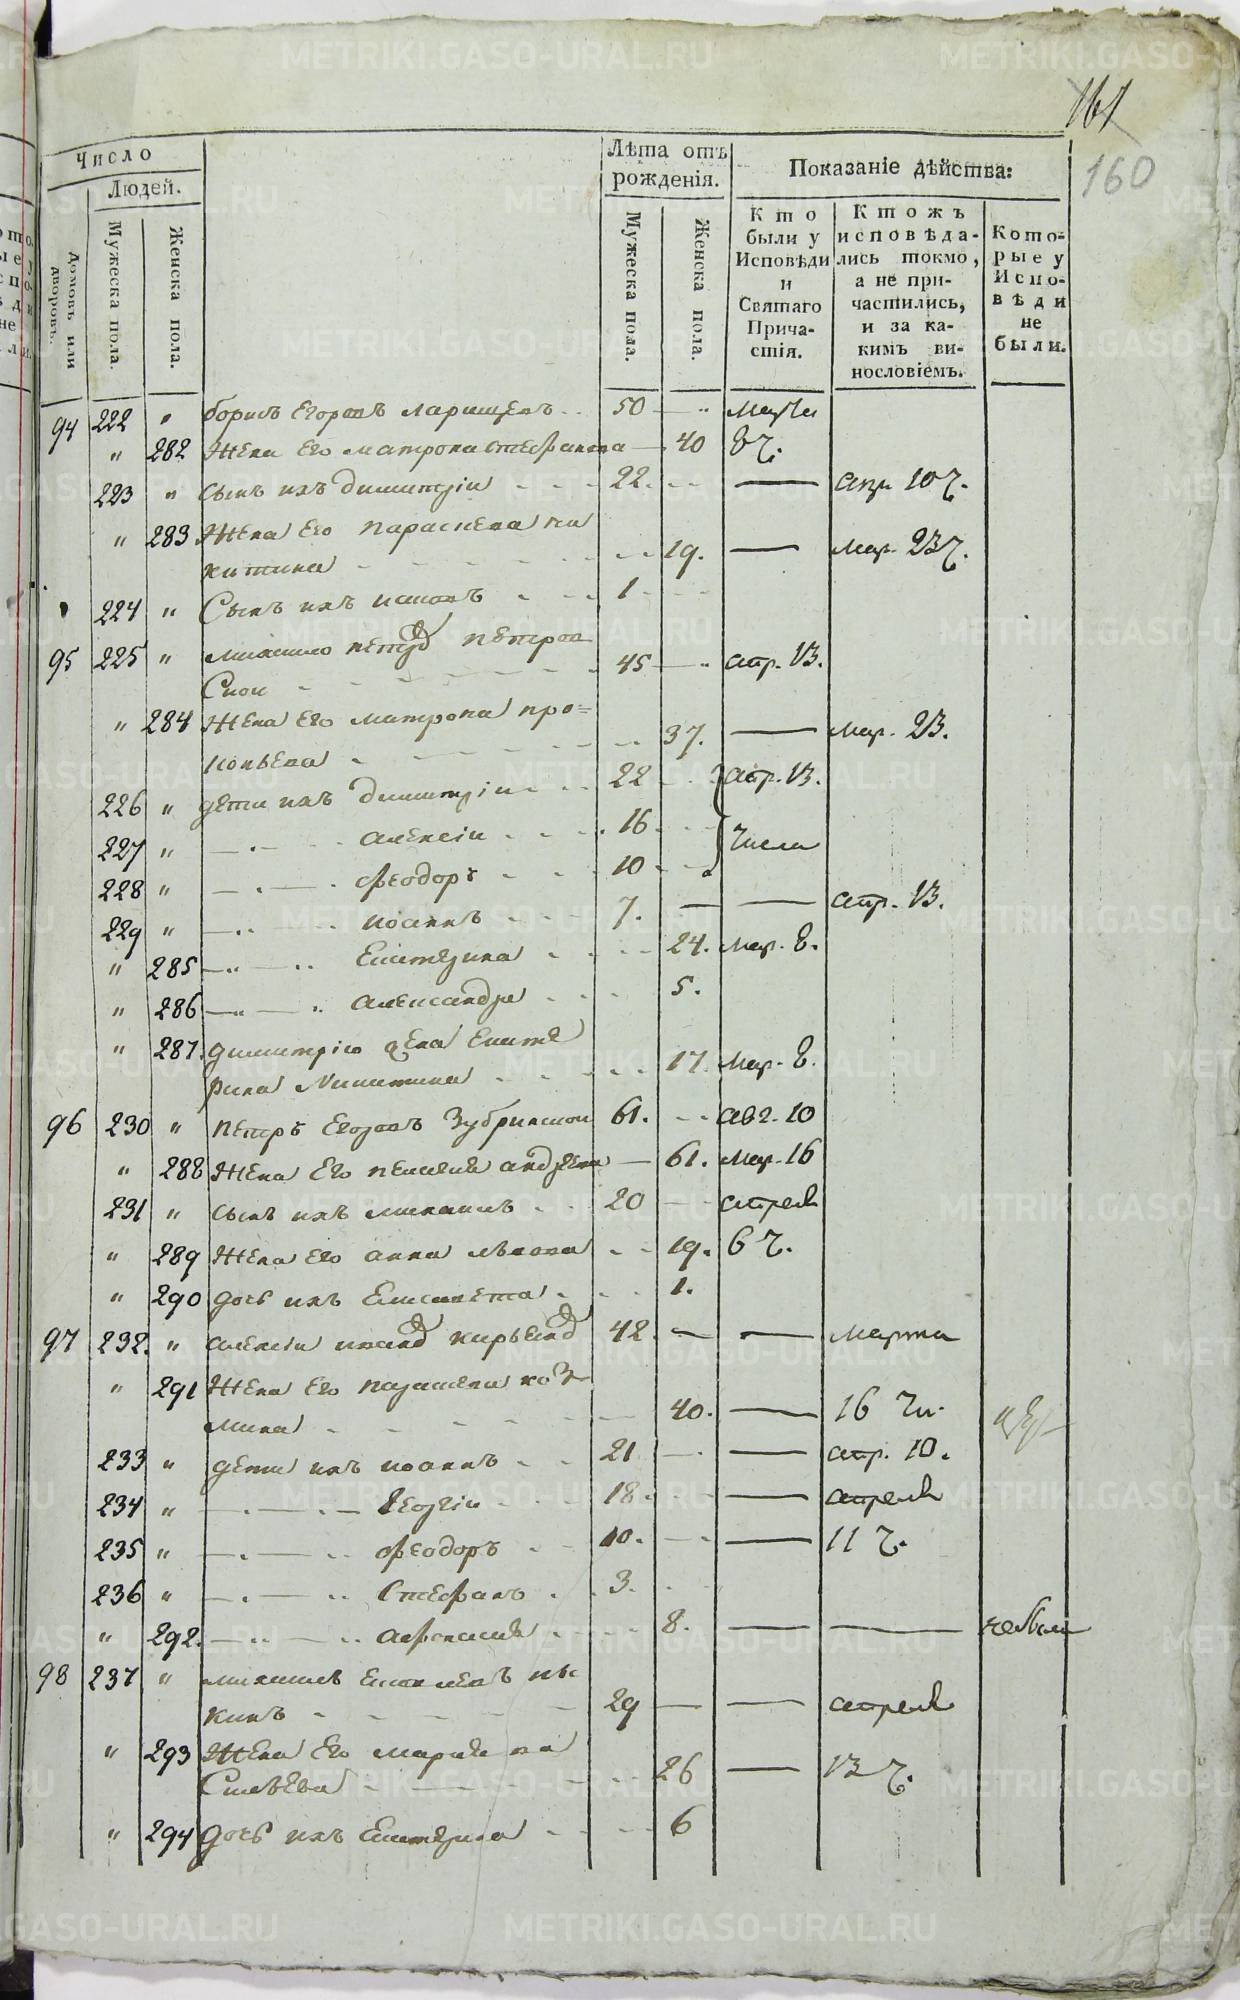 161
160
Число
Людей.
Лѣта отъ рожденія.
Показаніе дѣйства:
Домовъ или дворовъ.
Мужеска пола.
Женска пола.
Мужеска пола.
Женска пола.
Кто были у Исповѣди и Святаго Причастія.
Ктожъ исповѣдались токмо, а не причастились, и за какимъ винословіемъ.
Которые у Исповѣди не были.
94 222 " борисъ Егоровъ Ларищевъ 50
" 282 Жена Его матрона стефанова 40 8 ч.
223 " сынъ ихъ димитріи 22. апр. 10 ч.
" 283 Жена Его параскева ни
китина 19. мар. 23 ч.
224 " Сынъ ихъ иаковъ 1
95 225 " михаило петровъ петров
скои 45 апр. 13.
" 284 Жена Его матрона про=
копьева 37. мар. 23.
226 " дети ихъ димитріи 22 апр. 13.
227 " алексіи 16 числа
228 " феодоръ 10
229 " иоаннъ 7. апр. 13.
" 285 Екатерина 24. мар. 8.
" 286 александра 5.
" 287. димитрію жена Екате
рина Никитина 17. мар. 8.
96 230 " петръ Егоровъ Зубринскои 61. авг. 10
" 288 Жена Его пелагея андреева 61. мар. 16
231 " сынъ ихъ михаилъ 20 апреля
" 289 Жена Его анна львова 19. 6 ч.
" 290 дочь ихъ Елисавета 1.
97 232. " алексіи иванов кирьянов 42. марта
" 291 Жена Его параскева коз
мина 40. 16 чи.
233 " дети ихъ иоаннъ 21 апр. 10.
234 " Георгіи 18. апреля
235 " феодоръ 10. 11 ч.
236 " Стефанъ 3.
" 292. афанасия 8. небыла
98 237 " михаилъ
кинъ 29 апреля
" 293 Жена Его Мария ва
сильева 26 13 ч.
" 294 дочь ихъ Екатерина 6
METRIKI.GASO-URAL.RU